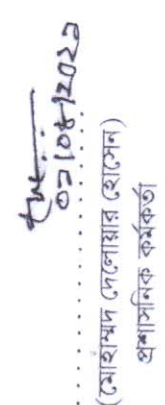 ০১/০৮/২০২১
(মোহাম্মদ দেলোয়ার হোসেন)
প্রশাসনিক কর্মকর্তা